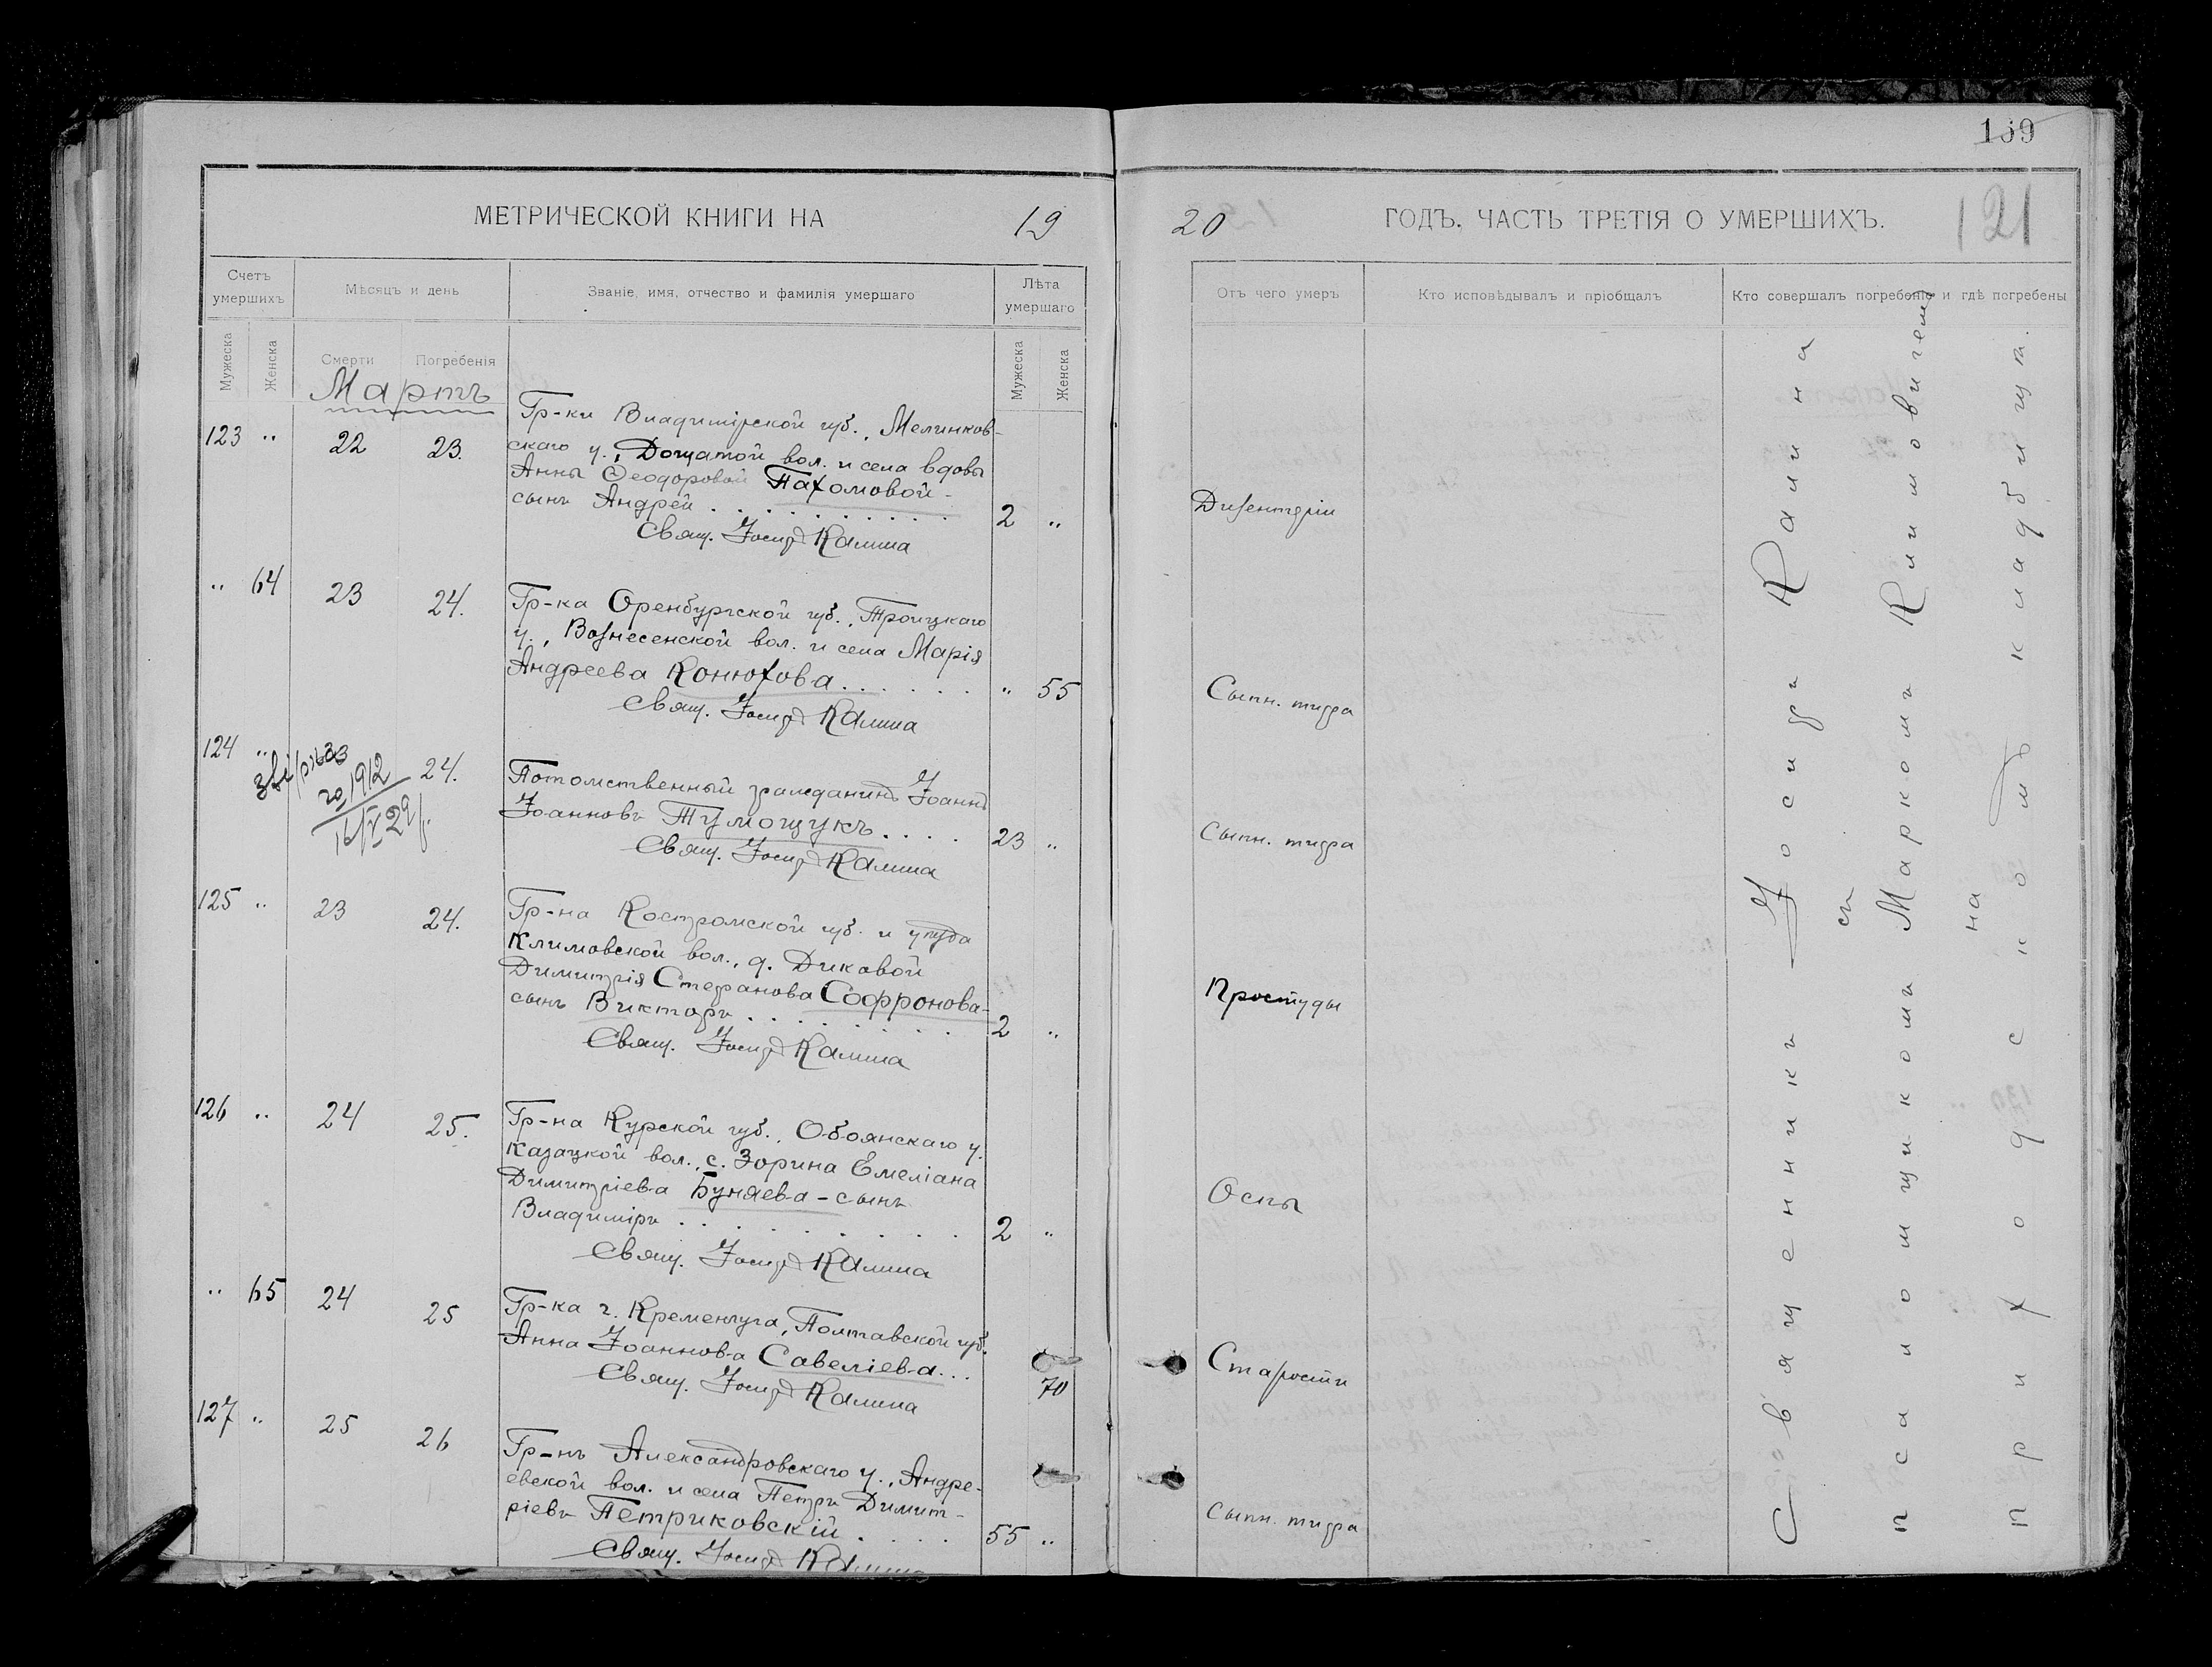 159
МЕТРИЧЕСКОЙ КНИГИ НА 19
20 ГОДЪ. ЧАСТЬ ТРЕТІЯ О УМЕРШИХЪ. 121
Счетъ умершихъ
Мѣсяцъ и день
Званіе, имя, отчество и фамилія умершаго
Лѣта умершаго
Отъ чего умеръ
Кто исповѣдывалъ и пріобщалъ
Кто совершалъ погребеніе и гдѣ погребены
Мужеска
Женска
Смерти
Погребенія
Мужеска
Женска
Мартъ
123 " 22 23.
Гр-ки Владимірской губ., Мелинков-
скаго у., Дощатой вол. и села вдовы
Анны Ѳеодоровой Пахомовой -
сынъ Андрей . . . . . . . . . . 2 "
Дизентеріи
Свящ. Іосифъ Калина
" 64 23 24.
Гр-ка Оренбургской губ., Троицкаго
у., Вознесенской вол. и села Марія
Андреева Конюхова . . . . . . " 55
Сыпн. тифа
Свящ. Іосифъ Калина
124 " 23 24.
1912
Потомственный гражданинъ Іоаннъ
Іоанновъ Тумощукъ . . . . 23 "
Сыпн. тифа
Свящ. Іосифъ Калина
125 " 23 24.
Гр-на Костромской губ. и уѣзда
Климовской вол., д. Диковой
Димитрія Стефанова Софронова-
сынъ Викторъ . . . . . . . . . 2 "
Простуды
Свящ. Іосифъ Калина
126 " 24 25.
Гр-на Курской губ., Обоянскаго у.
Казацкой вол., с. Зорина Емеліана
Димитріева Буняева - сынъ
Владиміръ . . . . . . . . . . 2 "
Оспы
Свящ. Іосифъ Калина
" 65 24 25
Гр-ка г. Кременчуга, Полтавской губ.
Анна Іоаннова Савеліева . . .
70
Старости
Свящ. Іосифъ Калина
127 " 25 26
Гр-нъ Александровскаго у., Андре-
евской вол. и села Петръ Димит-
ріевъ Петриковскій . . . . 55 "
Сыпн. тифа
Свящ. Іосифъ Калина
Священникъ Іосифъ Калина
съ
псаломщикомъ Маркомъ Климовичемъ
на
приходскомъ кладбищѣ.